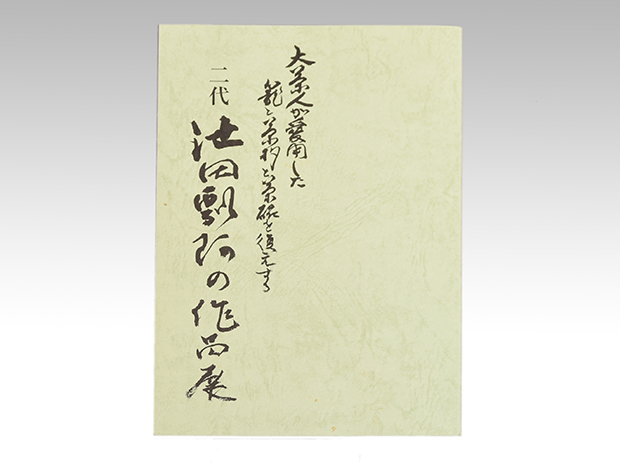 大茶人が愛用した
籠と茶杓と茶碗を復元する
二代 池田瓢阿の作品展